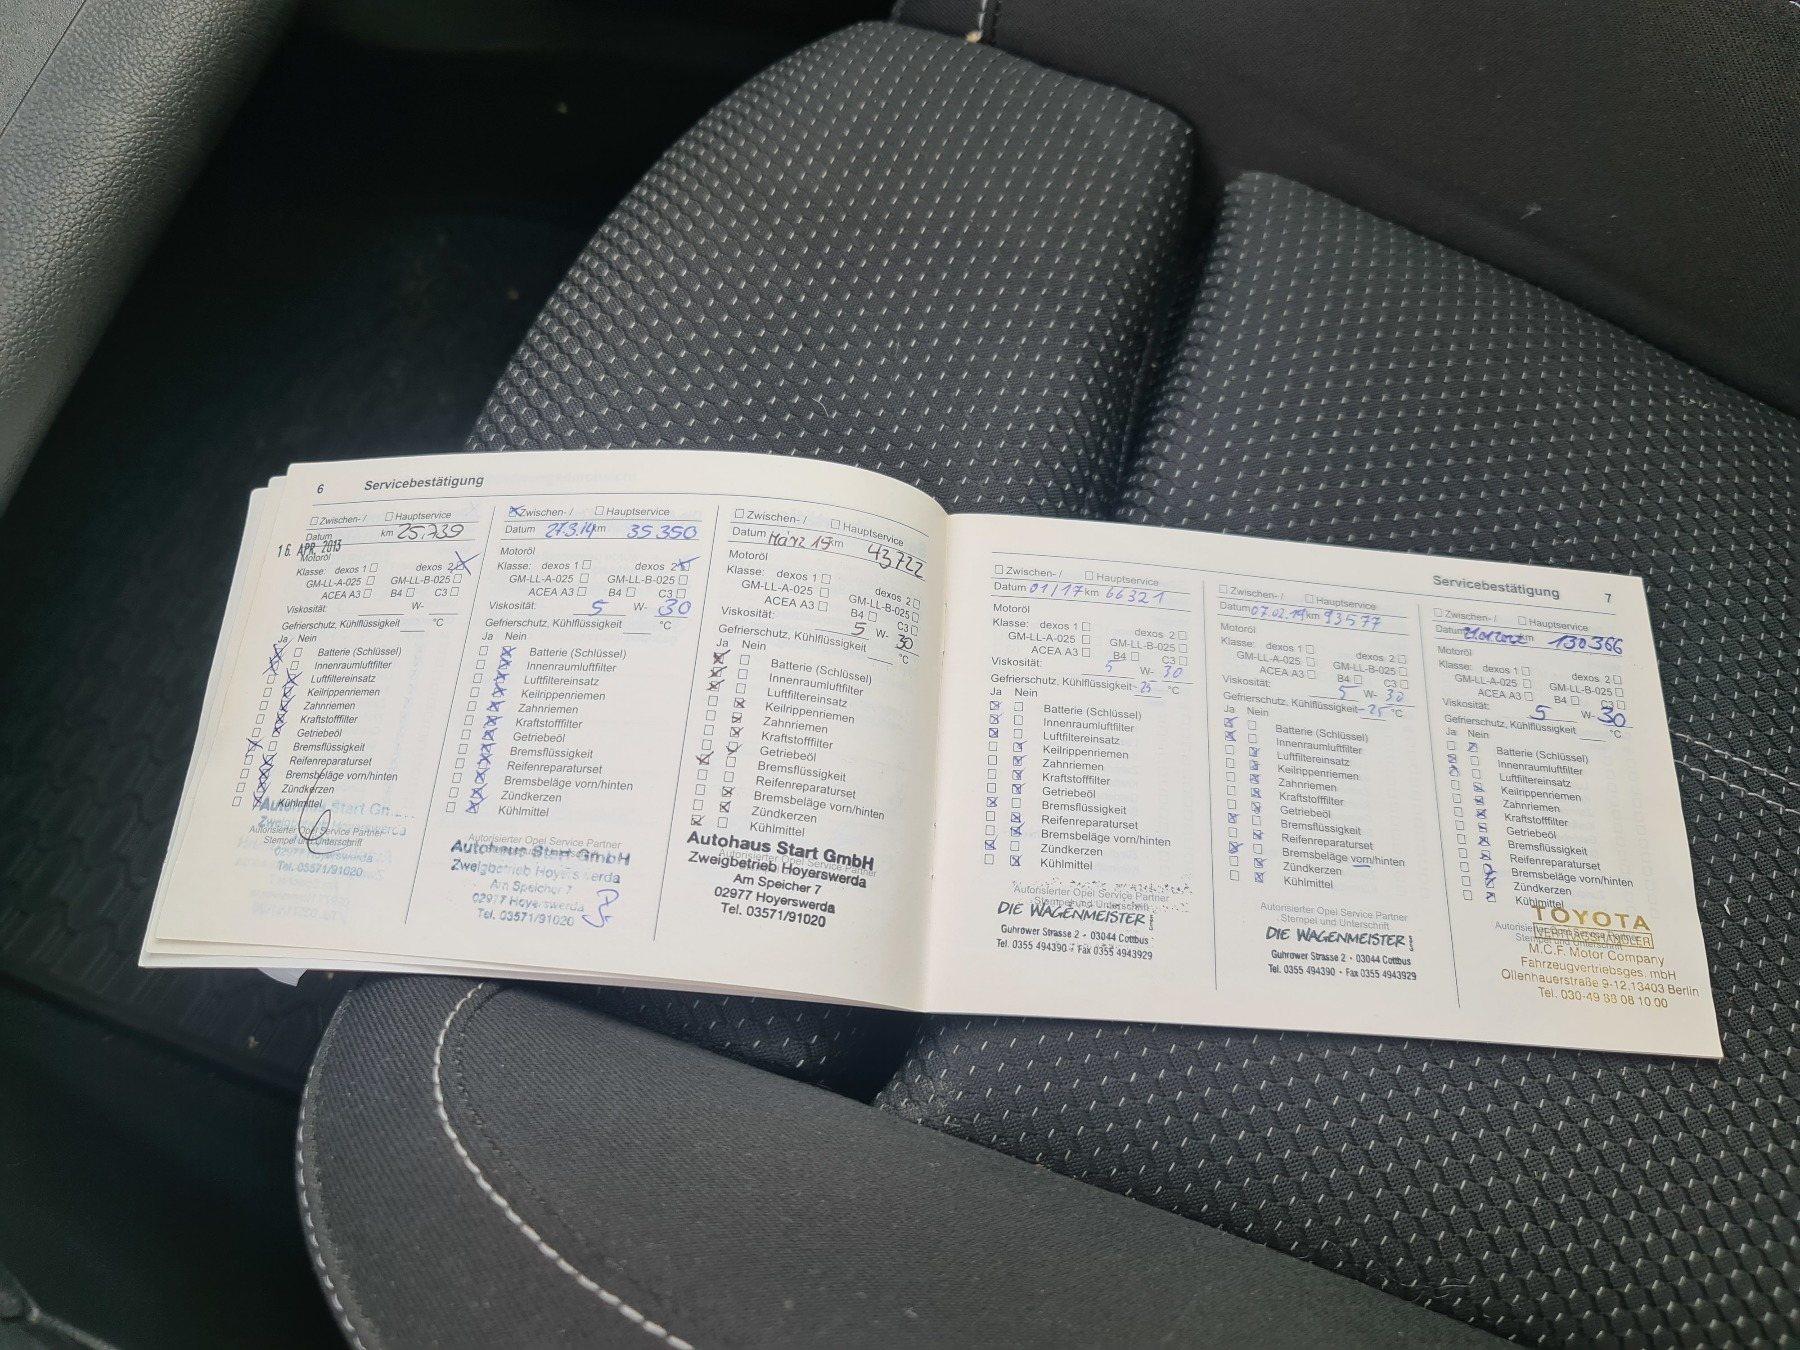 6 Servicebestätigung
☐ Zwischen- / ☐ Hauptservice
Datum km 25.739
16. APR. 2013
Motoröl
Klasse: dexos 1 ☐ dexos 2 ☒
GM-LL-A-025 ☐ GM-LL-B-025 ☐
ACEA A3 ☐ B4 ☐ C3 ☐
Viskosität: W-
Gefrierschutz, Kühlflüssigkeit °C
Ja Nein
Batterie (Schlüssel)
Innenraumluftfilter
Luftfiltereinsatz
Keilrippenriemen
Zahnriemen
Kraftstofffilter
Getriebeöl
Bremsflüssigkeit
Reifenreparaturset
Bremsbeläge vorn/hinten
Zündkerzen
Kühlmittel
Autohaus Start
Autorisierter Opel Service Partner
Stempel und Unterschrift
Hoyerswerda
Tel. 03571/91020
☒ Zwischen- / ☐ Hauptservice
Datum 27.3.14 km 35 350
Motoröl
Klasse: dexos 1 ☐ dexos 2 ☒
GM-LL-A-025 ☐ GM-LL-B-025 ☐
ACEA A3 ☐ B4 ☐ C3 ☐
Viskosität: 5 W- 30
Gefrierschutz, Kühlflüssigkeit °C
Ja Nein
Batterie (Schlüssel)
Innenraumluftfilter
Luftfiltereinsatz
Keilrippenriemen
Zahnriemen
Kraftstofffilter
Getriebeöl
Bremsflüssigkeit
Reifenreparaturset
Bremsbeläge vorn/hinten
Zündkerzen
Kühlmittel
Autorisierter Opel Service Partner
Autohaus Start GmbH
Zweigbetrieb Hoyerswerda
Am Speicher 7
02977 Hoyerswerda
Tel. 03571/91020
☐ Zwischen- / ☐ Hauptservice
Datum März 15 km 43.722
Motoröl
Klasse: dexos 1 ☐ dexos 2 ☐
GM-LL-A-025 ☐ GM-LL-B-025 ☐
ACEA A3 ☐ B4 ☐ C3 ☐
Viskosität: 5 W- 30
Gefrierschutz, Kühlflüssigkeit °C
Ja Nein
Batterie (Schlüssel)
Innenraumluftfilter
Luftfiltereinsatz
Keilrippenriemen
Zahnriemen
Kraftstofffilter
Getriebeöl
Bremsflüssigkeit
Reifenreparaturset
Bremsbeläge vorn/hinten
Zündkerzen
Kühlmittel
Autohaus Start GmbH
Autorisierter Opel Service Partner
Zweigbetrieb Hoyerswerda
Am Speicher 7
02977 Hoyerswerda
Tel. 03571/91020
Servicebestätigung 7
☐ Zwischen- / ☐ Hauptservice
Datum 01/17 km 66321
Motoröl
Klasse: dexos 1 ☐ dexos 2 ☐
GM-LL-A-025 ☐ GM-LL-B-025 ☐
ACEA A3 ☐ B4 ☐ C3 ☐
Viskosität: 5 W- 30
Gefrierschutz, Kühlflüssigkeit -25 °C
Ja Nein
Batterie (Schlüssel)
Innenraumluftfilter
Luftfiltereinsatz
Keilrippenriemen
Zahnriemen
Kraftstofffilter
Getriebeöl
Bremsflüssigkeit
Reifenreparaturset
Bremsbeläge vorn/hinten
Zündkerzen
Kühlmittel
Autorisierter Opel Service Partner
Stempel und Unterschrift
DIE WAGENMEISTER GmbH
Guhrower Strasse 2 • 03044 Cottbus
Tel. 0355 494390 • Fax 0355 4943929
☐ Zwischen- / ☐ Hauptservice
Datum 07.02.19 km 93577
Motoröl
Klasse: dexos 1 ☐ dexos 2 ☐
GM-LL-A-025 ☐ GM-LL-B-025 ☐
ACEA A3 ☐ B4 ☐ C3 ☐
Viskosität: 5 W- 30
Gefrierschutz, Kühlflüssigkeit -25 °C
Ja Nein
Batterie (Schlüssel)
Innenraumluftfilter
Luftfiltereinsatz
Keilrippenriemen
Zahnriemen
Kraftstofffilter
Getriebeöl
Bremsflüssigkeit
Reifenreparaturset
Bremsbeläge vorn/hinten
Zündkerzen
Kühlmittel
Autorisierter Opel Service Partner
Stempel und Unterschrift
DIE WAGENMEISTER GmbH
Guhrower Strasse 2 • 03044 Cottbus
Tel. 0355 494390 • Fax 0355 4943929
☐ Zwischen- / ☐ Hauptservice
Datum km 130.366
Motoröl
Klasse: dexos 1 ☐ dexos 2 ☐
GM-LL-A-025 ☐ GM-LL-B-025 ☐
ACEA A3 ☐ B4 ☐ C3 ☐
Viskosität: 5 W- 30
Gefrierschutz, Kühlflüssigkeit °C
Ja Nein
Batterie (Schlüssel)
Innenraumluftfilter
Luftfiltereinsatz
Keilrippenriemen
Zahnriemen
Kraftstofffilter
Getriebeöl
Bremsflüssigkeit
Reifenreparaturset
Bremsbeläge vorn/hinten
Zündkerzen
Kühlmittel
TOYOTA
Autorisierter Opel Service Partner
VERTRAGSHÄNDLER
Stempel und Unterschrift
M.C.F. Motor Company
Fahrzeugvertriebsges. mbH
Ollenhauerstraße 9-12, 13403 Berlin
Tel. 030-49 88 08 10 00